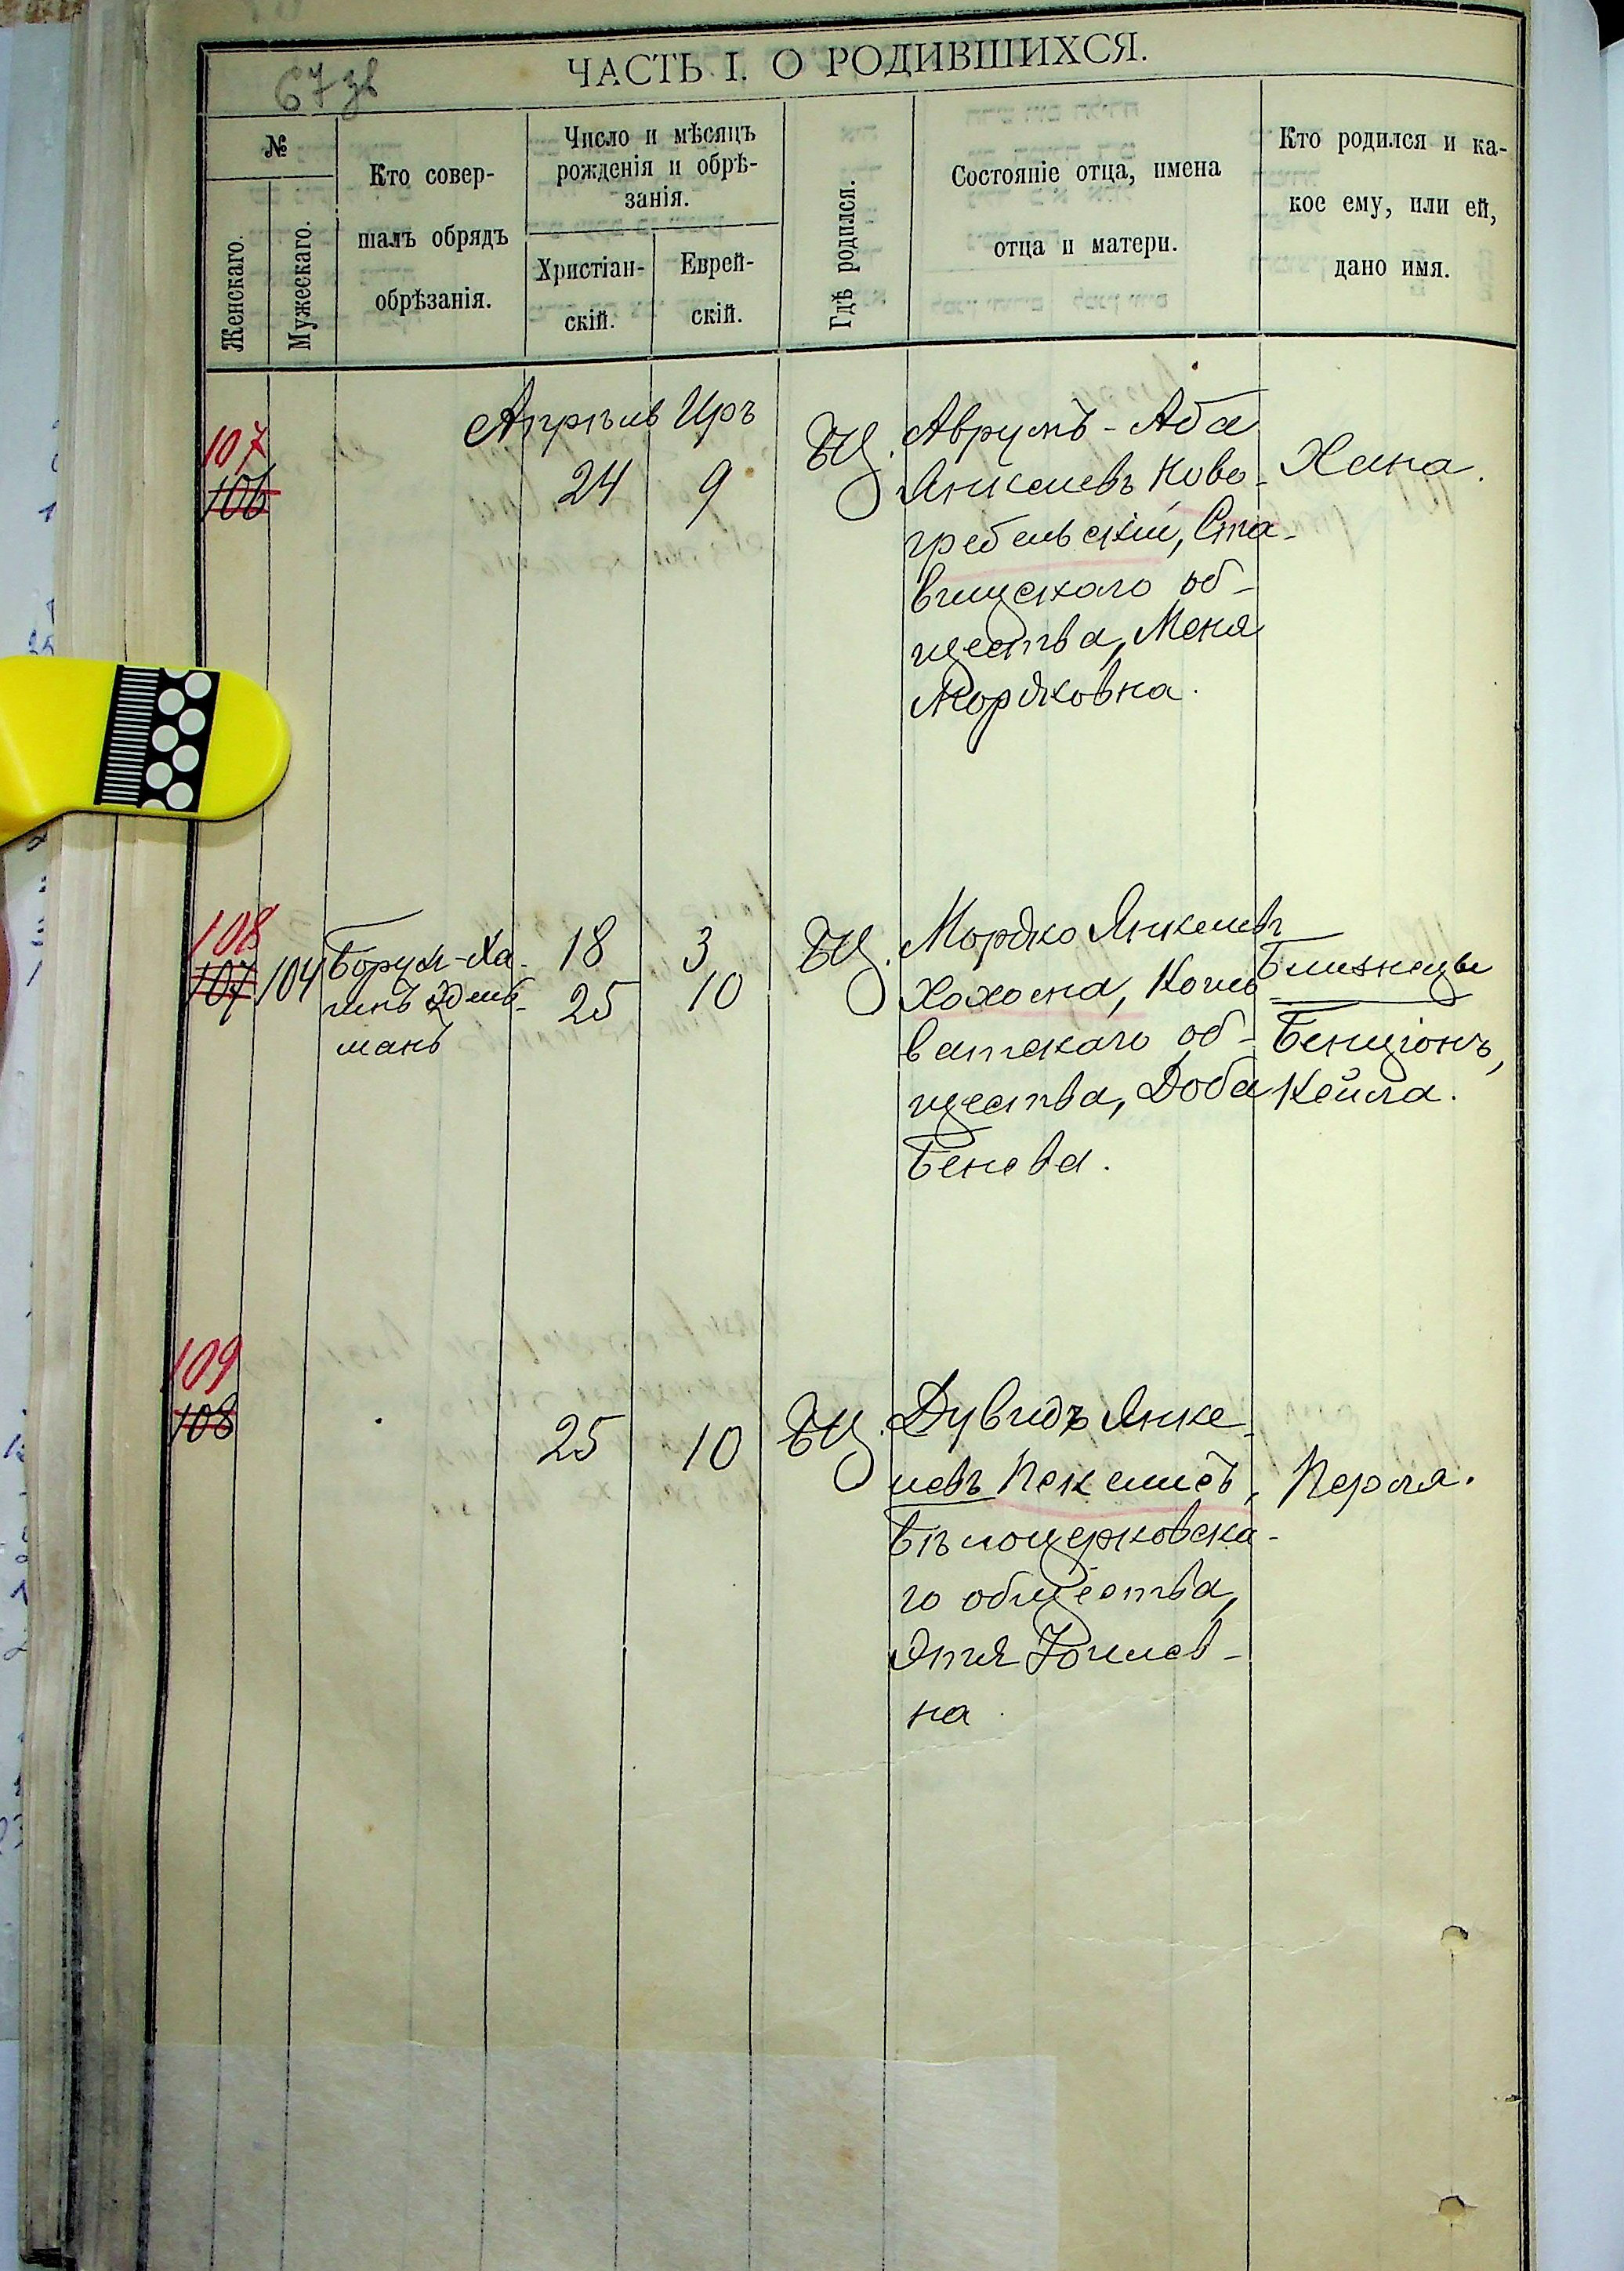 67 зв
ЧАСТЬ I. О РОДИВШИХСЯ.
№
Женскаго.
Мужескаго.
Кто совер-
шалъ обрядъ
обрѣзанія.
Число и мѣсяцъ
рожденія и обрѣ-
занія.
Христіан-
скій.
Еврей-
скій.
Гдѣ родился.
Состояніе отца, имена
отца и матери.
Кто родился и ка-
кое ему, или ей,
дано имя.
Апрѣль Иръ
107
106
24
9
БЦ.
Аврумъ-Аба
Янкелевъ Ново-
гребельскій, Ста-
вищскаго об-
щества, Меня
Мордковна.
Хана.
108
107
104
Борух-Ха-
имъ Эдель-
манъ
18
25
3
10
БЦ.
Мордко Янкелевъ
Хахома, Кошо-
ватскаго об-
щества, Доба
Бенева.
Близнецы
Бенціонъ,
Кейла.
109
108
25
10
БЦ.
Дувидъ Янке-
левъ Пекелисъ,
Бѣлоцерковска-
го общества,
Этя Іоилев-
на
Перля.